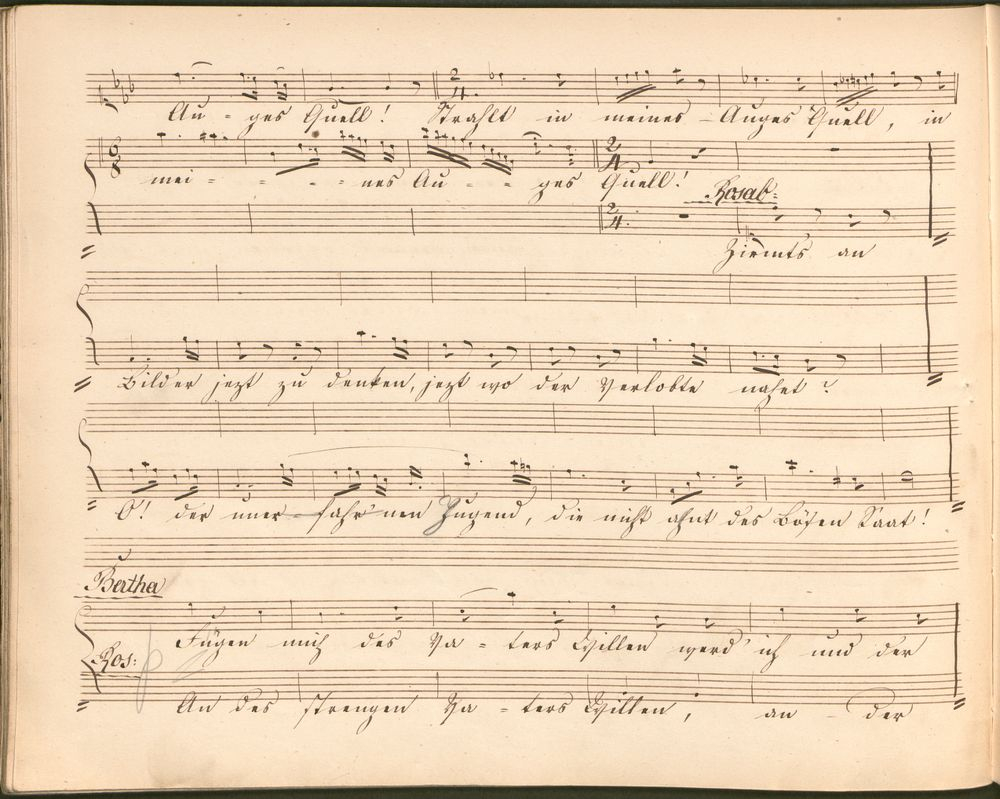 Au - ges Quell! Strahlt in meines - Auges Quell, in
mei - - - - nes Au - - ges Quell!
Rosab:
Ziemts an
Bilder jezt zu denken, jezt wo der Verlobte nahet?
O! der uner - fahr'nen Jugend, die nicht ahnt des Bösen Saat!
Bertha
Fügen mich des Va - ters Willen werd' ich und der
Ros:
An des strengen Va - ters Willen, an - der